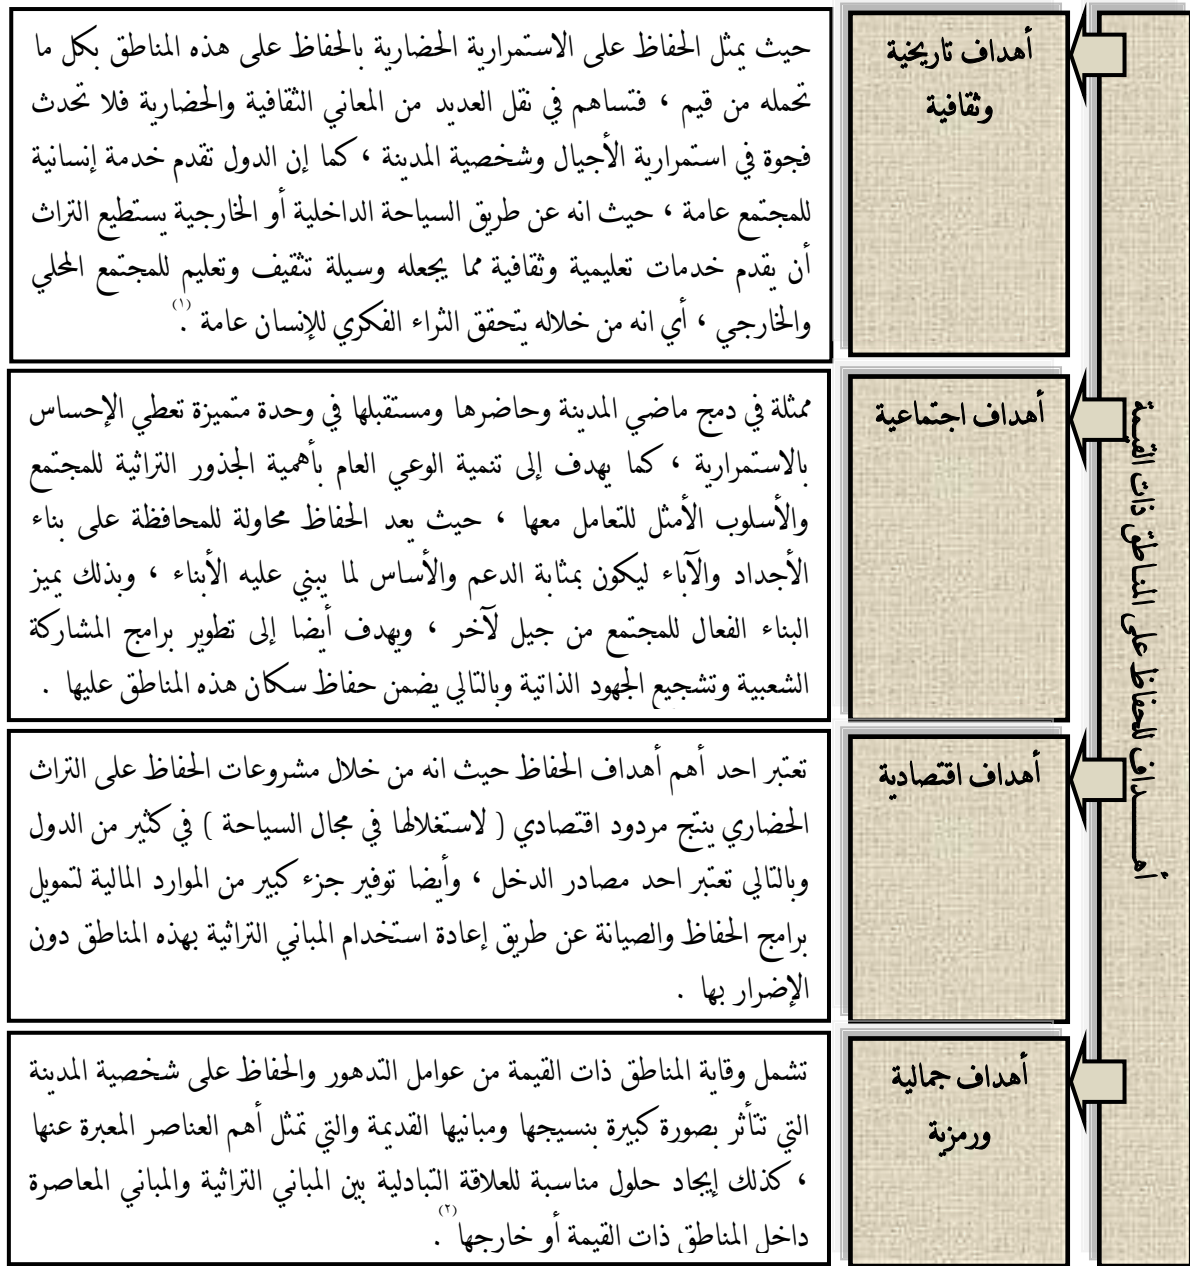 أهـــــداف للحفاظ على المناطق ذات القيمة
أهداف تاريخية
وثقافية
حيث يمثل الحفاظ على الاستمرارية الحضارية بالحفاظ على هذه المناطق بكل ما
تحمله من قيم ، فتساهم في نقل العديد من المعاني الثقافية والحضارية فلا تحدث
فجوة في استمرارية الأجيال وشخصية المدينة ، كما إن الدول تقدم خدمة إنسانية
للمجتمع عامة ، حيث انه عن طريق السياحة الداخلية أو الخارجية يستطيع التراث
أن يقدم خدمات تعليمية وثقافية مما يجعله وسيلة تثقيف وتعليم للمجتمع المحلي
والخارجي ، أي انه من خلاله يتحقق الثراء الفكري للإنسان عامة (١).
أهداف اجتماعية
ممثلة في دمج ماضي المدينة وحاضرها ومستقبلها في وحدة متميزة تعطي الإحساس
بالاستمرارية ، كما يهدف إلى تنمية الوعي العام بأهمية الجذور التراثية للمجتمع
والأسلوب الأمثل للتعامل معها ، حيث يعد الحفاظ محاولة للمحافظة على بناء
الأجداد والآباء ليكون بمثابة الدعم والأساس لما يبني عليه الأبناء ، وبذلك يميز
البناء الفعال للمجتمع من جيل لآخر ، ويهدف أيضا إلى تطوير برامج المشاركة
الشعبية وتشجيع الجهود الذاتية وبالتالي يضمن حفاظ سكان هذه المناطق عليها .
أهداف اقتصادية
تعتبر احد أهم أهداف الحفاظ حيث انه من خلال مشروعات الحفاظ على التراث
الحضاري ينتج مردود اقتصادي ( لاستغلالها في مجال السياحة ) في كثير من الدول
وبالتالي تعتبر احد مصادر الدخل ، وأيضا توفير جزء كبير من الموارد المالية لتمويل
برامج الحفاظ والصيانة عن طريق إعادة استخدام المباني التراثية بهذه المناطق دون
الإضرار بها .
أهداف جمالية
ورمزية
تشمل وقاية المناطق ذات القيمة من عوامل التدهور والحفاظ على شخصية المدينة
التي تتأثر بصورة كبيرة بنسيجها ومبانيها القديمة والتي تمثل أهم العناصر المعبرة عنها
، كذلك إيجاد حلول مناسبة للعلاقة التبادلية بين المباني التراثية والمباني المعاصرة
داخل المناطق ذات القيمة أو خارجها (٢).